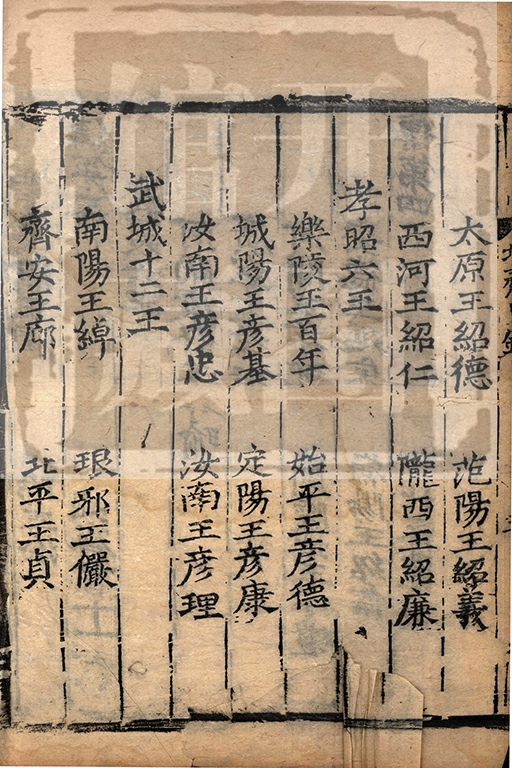 太原王紹德 范陽王紹義
西河王紹仁 隴西王紹廉
孝昭六王
樂陵王百年 始平王彥德
城陽王彥基 定陽王彥康
汝南王彥忠 汝南王彥理
武城十二王
南陽王綽 琅邪王儼
齊安王廊 北平王貞